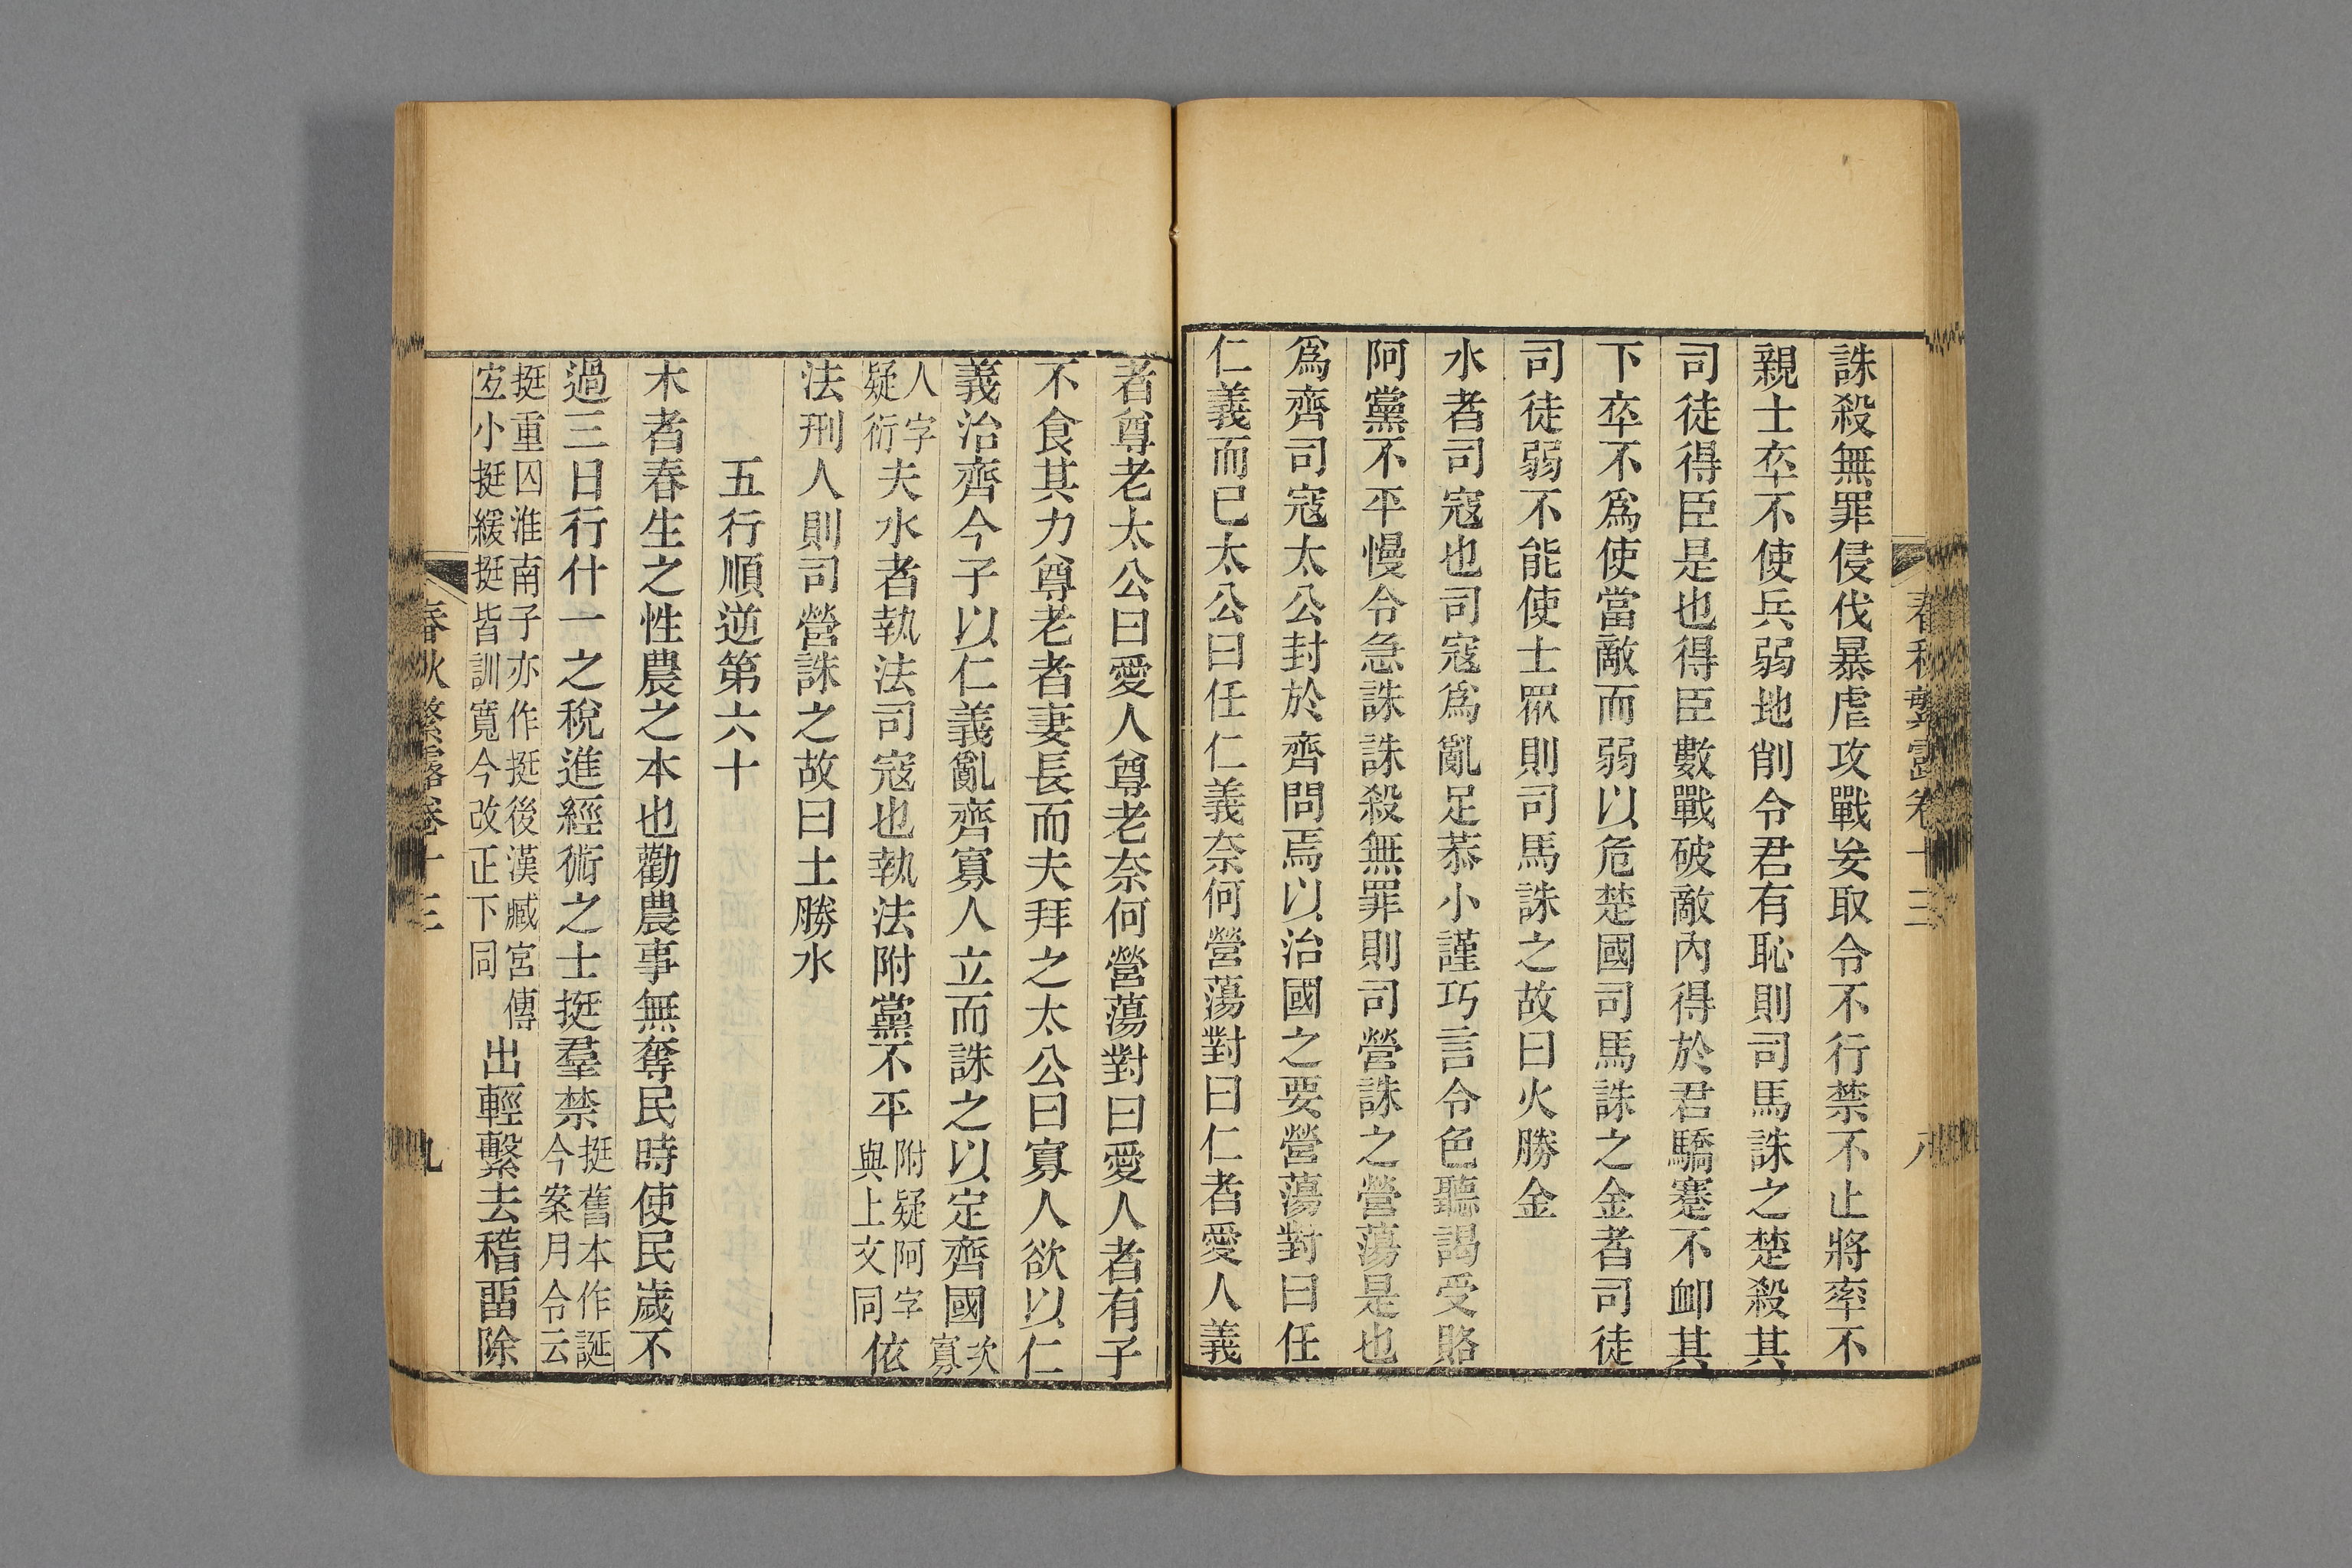 誅殺無罪侵伐暴虐攻戰妄取令不行禁不止將率不
親士卒不使兵弱地削令君有恥則司馬誅之楚殺其
司徒得臣是也得臣數戰破敵內得於君驕蹇不卹其
下卒不爲使當敵而弱以危楚國司馬誅之金者司徒
司徒弱不能使士眾則司馬誅之故曰火勝金
水者司寇也司寇爲亂足恭小謹巧言令色聽謁受賂
阿黨不平慢令急誅誅殺無罪則司營誅之營蕩是也
爲齊司寇太公封於齊問焉以治國之要營蕩對曰任
仁義而已太公曰任仁義奈何營蕩對曰仁者愛人義
者尊老太公曰愛人尊老奈何營蕩對曰愛人者有子
不食其力尊老者妻長而夫拜之太公曰寡人欲以仁
義治齊今子以仁義亂齊寡人立而誅之以定齊國次寡
人字疑衍夫水者執法司寇也執法附黨不平附疑阿字與上文同依
法刑人則司營誅之故曰土勝水
五行順逆第六十
木者春生之性農之本也勸農事無奪民時使民歲不
過三日行什一之稅進經術之士挺羣禁挺舊本作誕今案月令云
挺重囚淮南子亦作挺後漢臧宮傳宐小挺緩挺皆訓寬今改正下同出輕繫去稽畱除
春秋繁露卷十三
八
春秋繁露卷十三
九